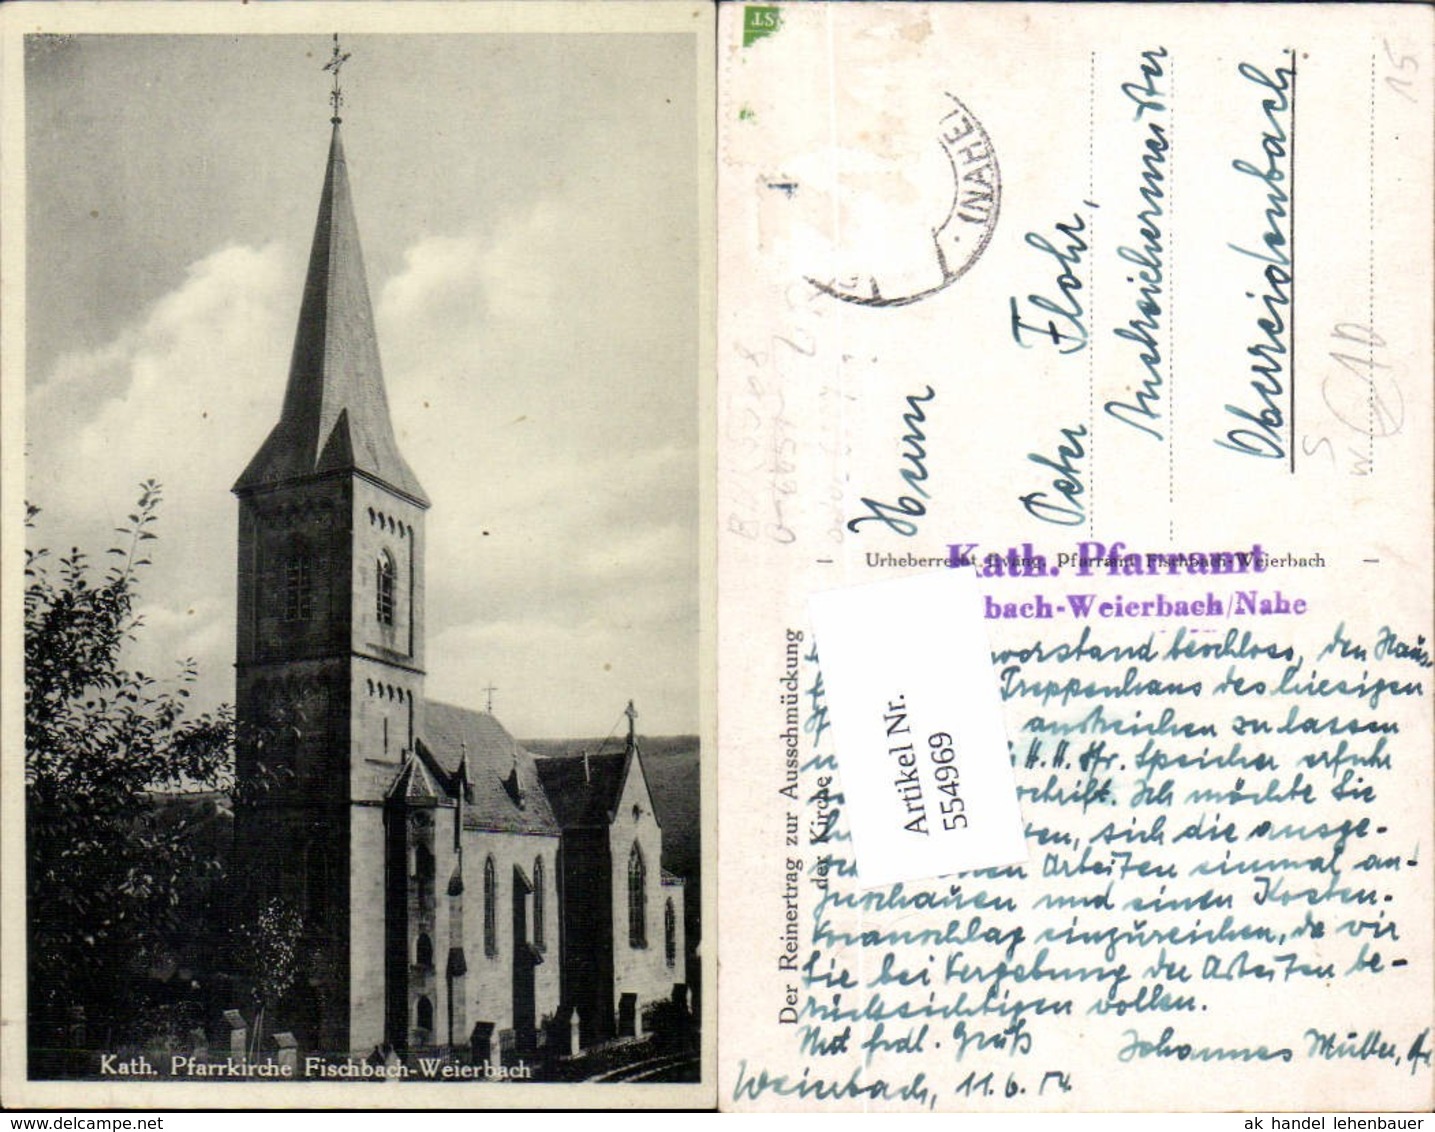 Kath. Pfarrkirche Fischbach-Weierbach
ST
(NAHE)
15
Herrn
Peter Flohr,
Anstreichermeister
Oberreidenbach.
Urheberrecht Evang. Pfarramt Fischbach-Weierbach
Kath. Pfarramt
bach-Weierbach/Nahe
Der Reinertrag zur Ausschmückung
der Kirche
Artikel Nr.
554969
vorstand beschloss, den
Treppenhaus des hiesigen
anstreichen zu lassen
H. H. Hr. Speicher erfuhr
schrift. Ich möchte Sie
sich die ausge-
Arbeiten einmal an-
zuschauen und einen Kosten-
voranschlag einzureichen, da wir
Sie bei Vergebung der Arbeiten be-
rücksichtigen wollen.
Mit frdl. Gruß Johannes Müller,
Weierbach, 11.6.54
ak handel lehenbauer